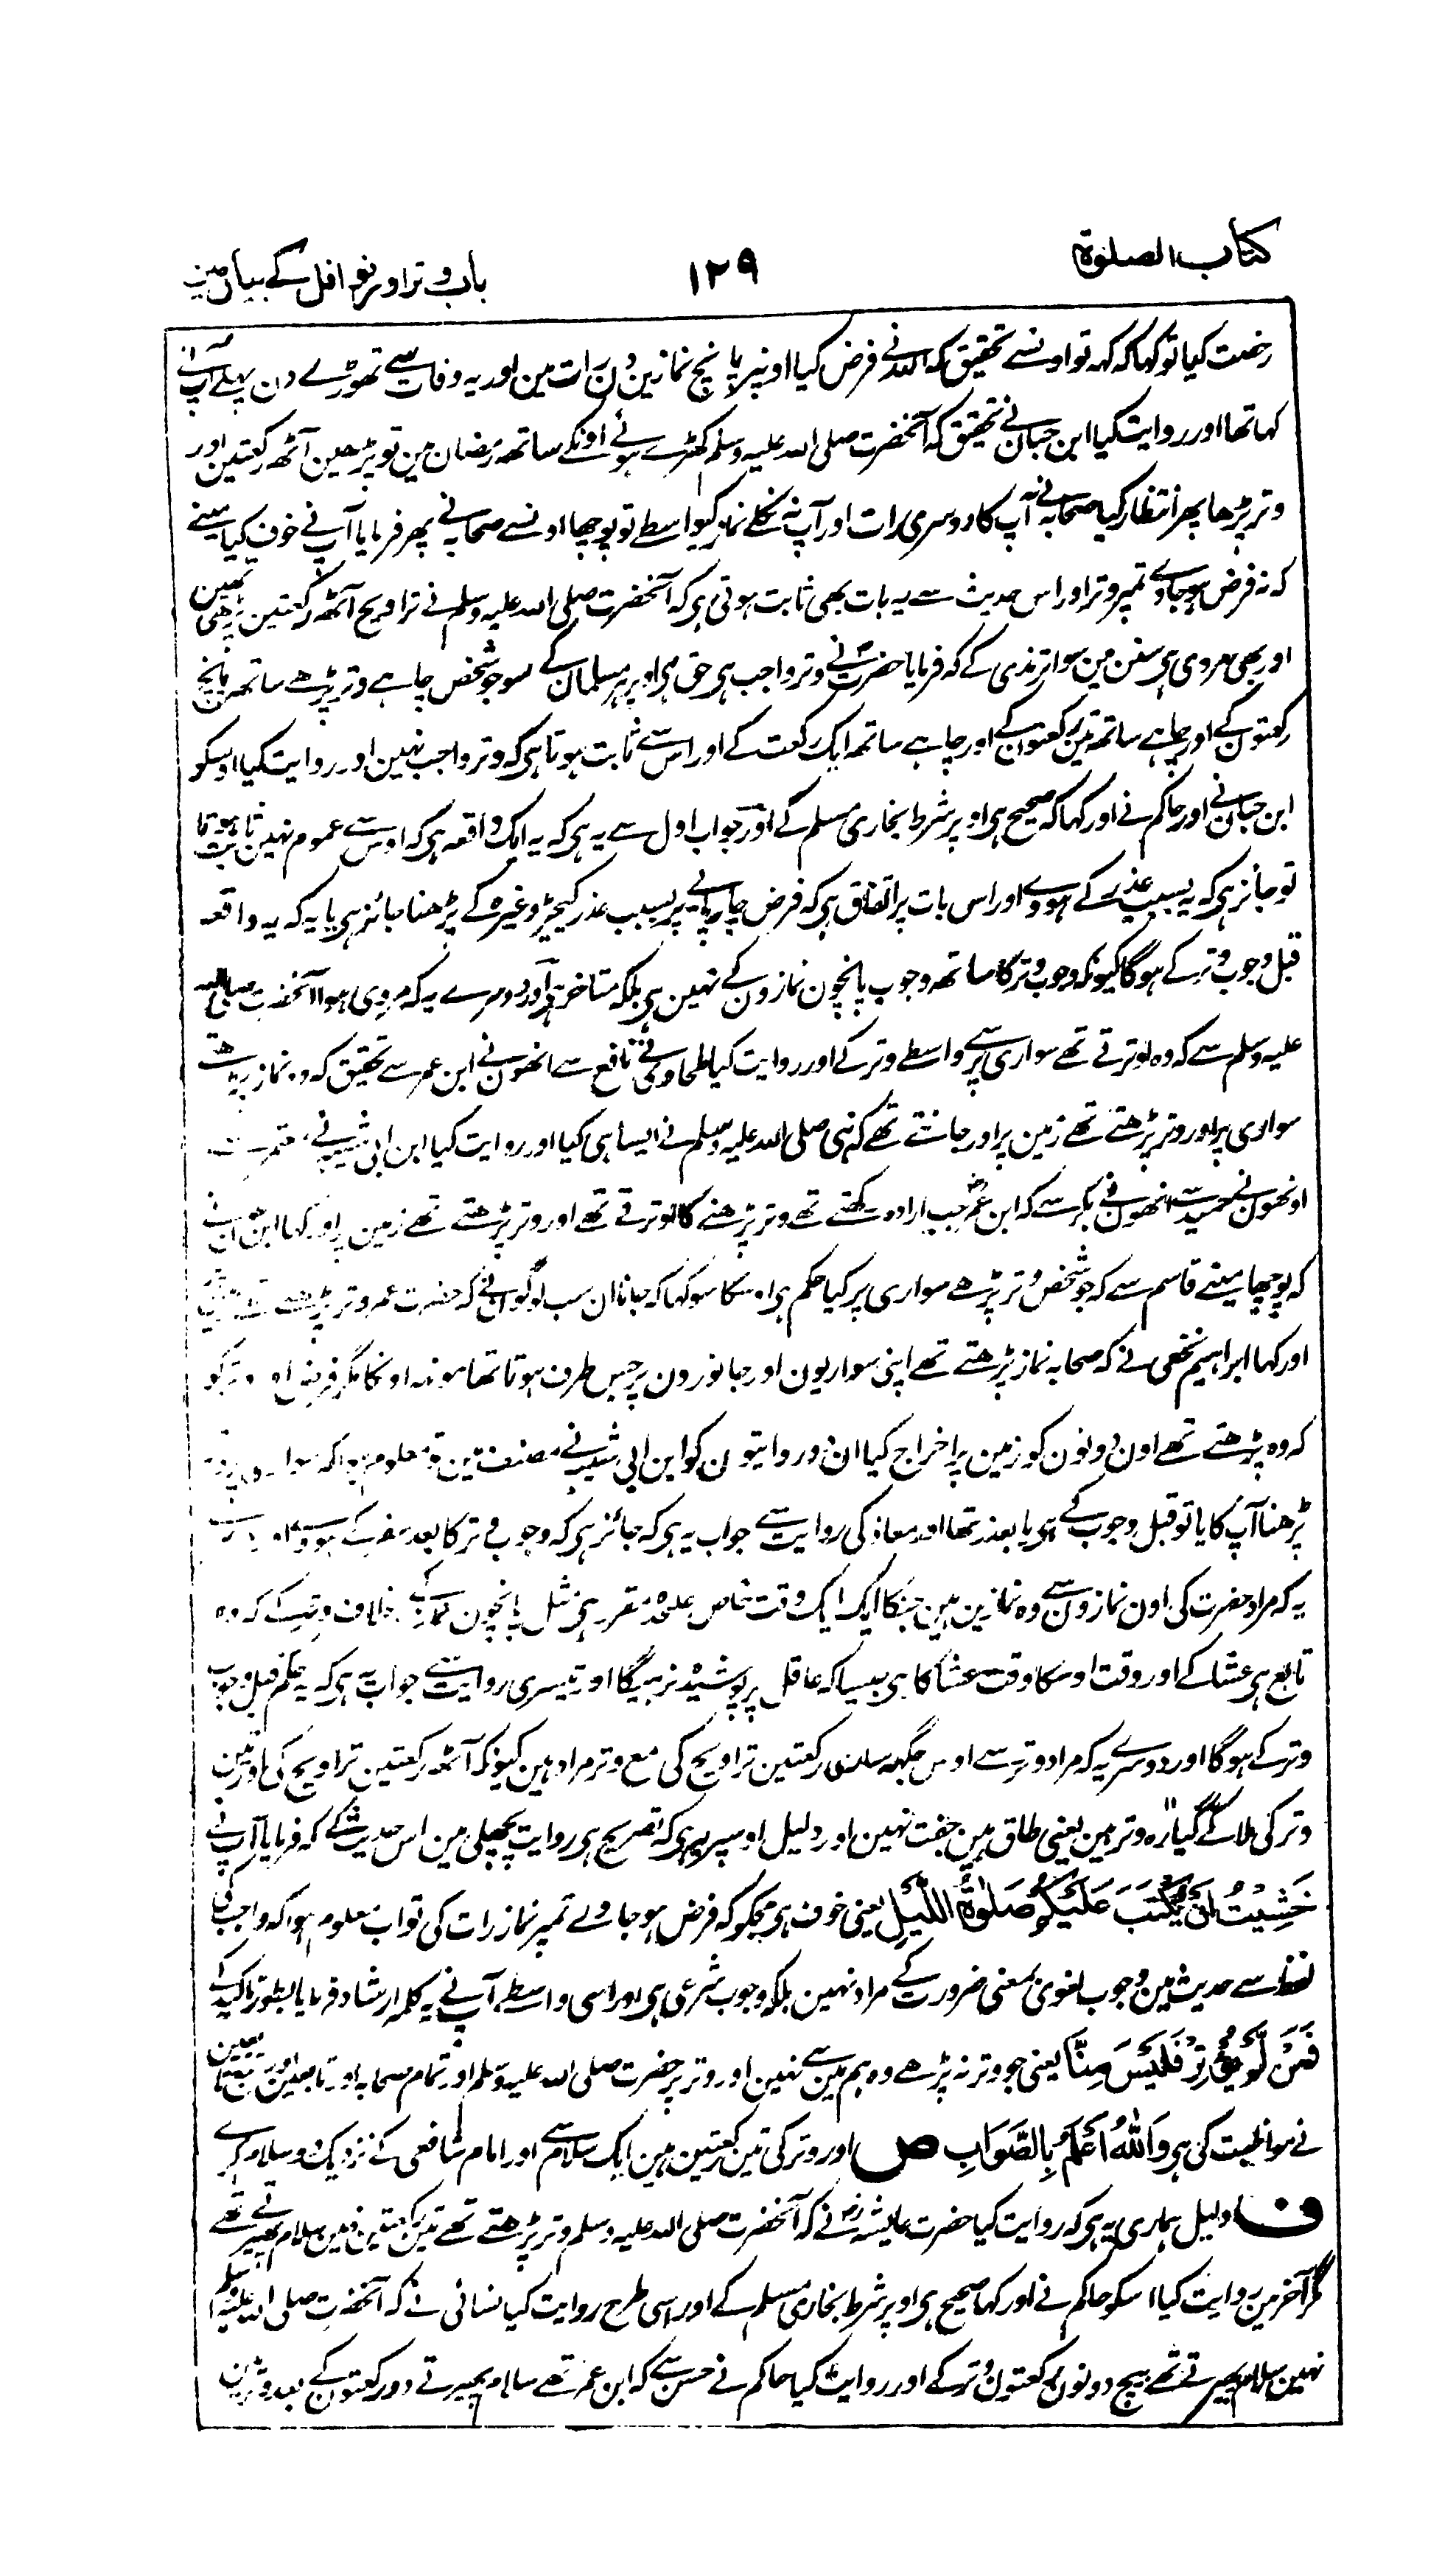 کتاب الصلوٰۃ
۱۲۹
باب وتر اور نوافل کے بیان مین
رخصت کیا تو کہا کہ کہہ تو اونسے تحقیق کہ اللہ نے فرض کیا اونپر پانچ نمازین دن رات مین اور یہ وفات سے تھوڑے دن پہلے آپ نے
کہا تھا اور روایت کیا ابن حبان نے تحقیق کہ آنحضرت صلی اللہ علیہ وسلم کھڑے ہوئے اونکے ساتھ رمضان مین تو پڑھین آٹھ رکعتین اور
وتر پڑھا پھر انتظار کیا صحابہ نے آپ کا دوسری رات اور آپ نہ نکلے نماز کیواسطے تو پوچھا اونسے صحابہ نے پھر فرمایا آپ نے خوف کیا مینے
کہ نہ فرض ہو جاوے تمپر وتر اور اس حدیث سے یہ بات بھی ثابت ہوتی ہی کہ آنحضرت صلی اللہ علیہ وسلم نے تراویح آٹھ رکعتین پڑھی تھین
اور بھی مروی ہی سنن مین سوا ترمذی کے کہ فرمایا حضرت نے وتر واجب ہی حق ہی اوپر ہر مسلمان کے سو جو شخص چاہے وتر پڑھے ساتھ پانچ
رکعتون کے اور چاہے ساتھ تین رکعتون کے اور چاہے ساتھ ایک رکعت کے اور اس سے ثابت ہوتا ہی کہ وتر واجب نہین اور روایت کیا اوسکو
ابن حبان نے اور حاکم نے اور کہا کہ صحیح ہی اوپر شرط بخاری مسلم کے اور جواب اول سے یہ ہی کہ یہ ایک واقعہ ہی کہ اوس سے عموم نہین ثابت ہوتا
تو جائز ہی کہ یہ بسبب عذر کے ہووے اور اس بات پر اتفاق ہی کہ فرض چارپائے پر بسبب عذر کیچڑ وغیرہ کے پڑھنا جائز ہی یا یہ کہ یہ واقعہ
قبل وجوب وتر کے ہوگا کیونکہ وجوب وتر کا ساتھ وجوب پانچون نمازون کے نہین ہی بلکہ متاخر ہی اور دوسرے یہ کہ مروی ہوا آنحضرت صلی اللہ
علیہ وسلم سے کہ وہ اوترتے تھے سواری پر سے واسطے وتر کے اور روایت کیا طحاوی نے نافع سے انھون نے ابن عمر سے تحقیق کہ وہ نماز پڑھتے
سواری پر اور وتر پڑھتے تھے زمین پر اور جانتے تھے کہ نبی صلی اللہ علیہ وسلم نے ایسا ہی کیا اور روایت کیا ابن ابی شیبہ نے
اونھون نے حمید سے انھون نے بکر سے کہ ابن عمر جب ارادہ رکھتے تھے وتر پڑھنے کا اوترتے تھے اور وتر پڑھتے تھے زمین پر اور کہا ابن
کہ پوچھا مینے قاسم سے کہ جو شخص وتر پڑھے سواری پر کیا حکم ہی اوسکا سو کہا کہ جانا ان سب لوگون نے کہ حضرت عمر وتر پڑھتے تھے
اور کہا ابراہیم نخعی نے کہ صحابہ نماز پڑھتے تھے اپنی سواریون اور جانورون پر جس طرف ہوتا تھا مونہہ اونکا مگر فرض اور وتر کو
کہ وہ پڑھتے تھے اون دونون کو زمین پر اخراج کیا ان دو روایتون کو ابن ابی شیبہ نے مصنف مین تو معلوم ہوا کہ سواری پر وتر
پڑھنا آپ کا یا تو قبل وجوب کے ہی یا بعذر تھا اور معاذ کی روایت سے جواب یہ ہی کہ جائز ہی کہ وجوب وتر کا بعد سفر کے ہووے
یہ کہ مراد حضرت کی اون نمازون سے وہ نمازین ہین جنکا ایک ایک وقت خاص علیحدہ مقرر ہی مثل پانچون نماز کے بخلاف وتر کے کہ وہ
تابع ہی عشا کے اور وقت اوسکا وقت عشا کا ہی جیسا کہ عاقل پر پوشیدہ نرہیگا اور تیسری روایت سے جواب یہ ہی کہ یہ حکم قبل وجوب
وتر کے ہوگا اور دوسرے یہ کہ مراد وتر سے اوس جگہہ ساری رکعتین تراویح کی مع وتر مراد ہین کیونکہ آٹھ رکعتین تراویح کی اور تین
وتر کی ملا کے گیارہ ۱۱ وتر ہین یعنی طاق ہین جفت نہین اور دلیل اوسپر یہ ہی کہ تصریح ہی روایت پچھلی مین اس حدیث کے کہ فرمایا آپ نے
خَشِيْتُ اَنْ يُّكْتَبَ عَلَيْكُمْ صَلٰوةُ اللَّيْلِ یعنی خوف ہی مجکو کہ فرض ہو جاوے تمپر نماز رات کی تو اب معلوم ہوا کہ واجب کی
لفظ سے حدیث مین وجوب لغوی بمعنی ضرورت کے مراد نہین بلکہ وجوب شرعی ہی اور اسی واسطے آپ نے یہ کلمہ ارشاد فرمایا بطور تاکید کے
فَمَنْ لَّمْ يُوْتِرْ فَلَيْسَ مِنَّا یعنی جو وتر نہ پڑھے وہ ہم مین سے نہین اور وتر پر حضرت صلی اللہ علیہ وسلم اور تمام صحابہ اور تابعین اور تبع تابعین
نے مواظبت کی ہی وَاللّٰهُ اَعْلَمُ بِالصَّوَابِ ص اور وتر کی تین رکعتین ہین ایک سلام سے اور امام شافعی کے نزدیک دو سلام کرے
ف دلیل ہماری یہ ہی کہ روایت کیا حضرت عایشہ رض نے کہ آنحضرت صلی اللہ علیہ وسلم وتر پڑھتے تھے تین رکعتین نہین سلام پھیرتے تھے
مگر آخر مین روایت کیا اسکو حاکم نے اور کہا صحیح ہی اوپر شرط بخاری مسلم کے اور اسی طرح روایت کیا نسائی نے کہ آنحضرت صلی اللہ علیہ وسلم
نہین سلام پھیرتے تھے بیچ دونون رکعتون وتر کے اور روایت کیا حاکم نے حسن سے کہ ابن عمر تھے سلام پھیرتے دو رکعتون کے بعد وتر مین